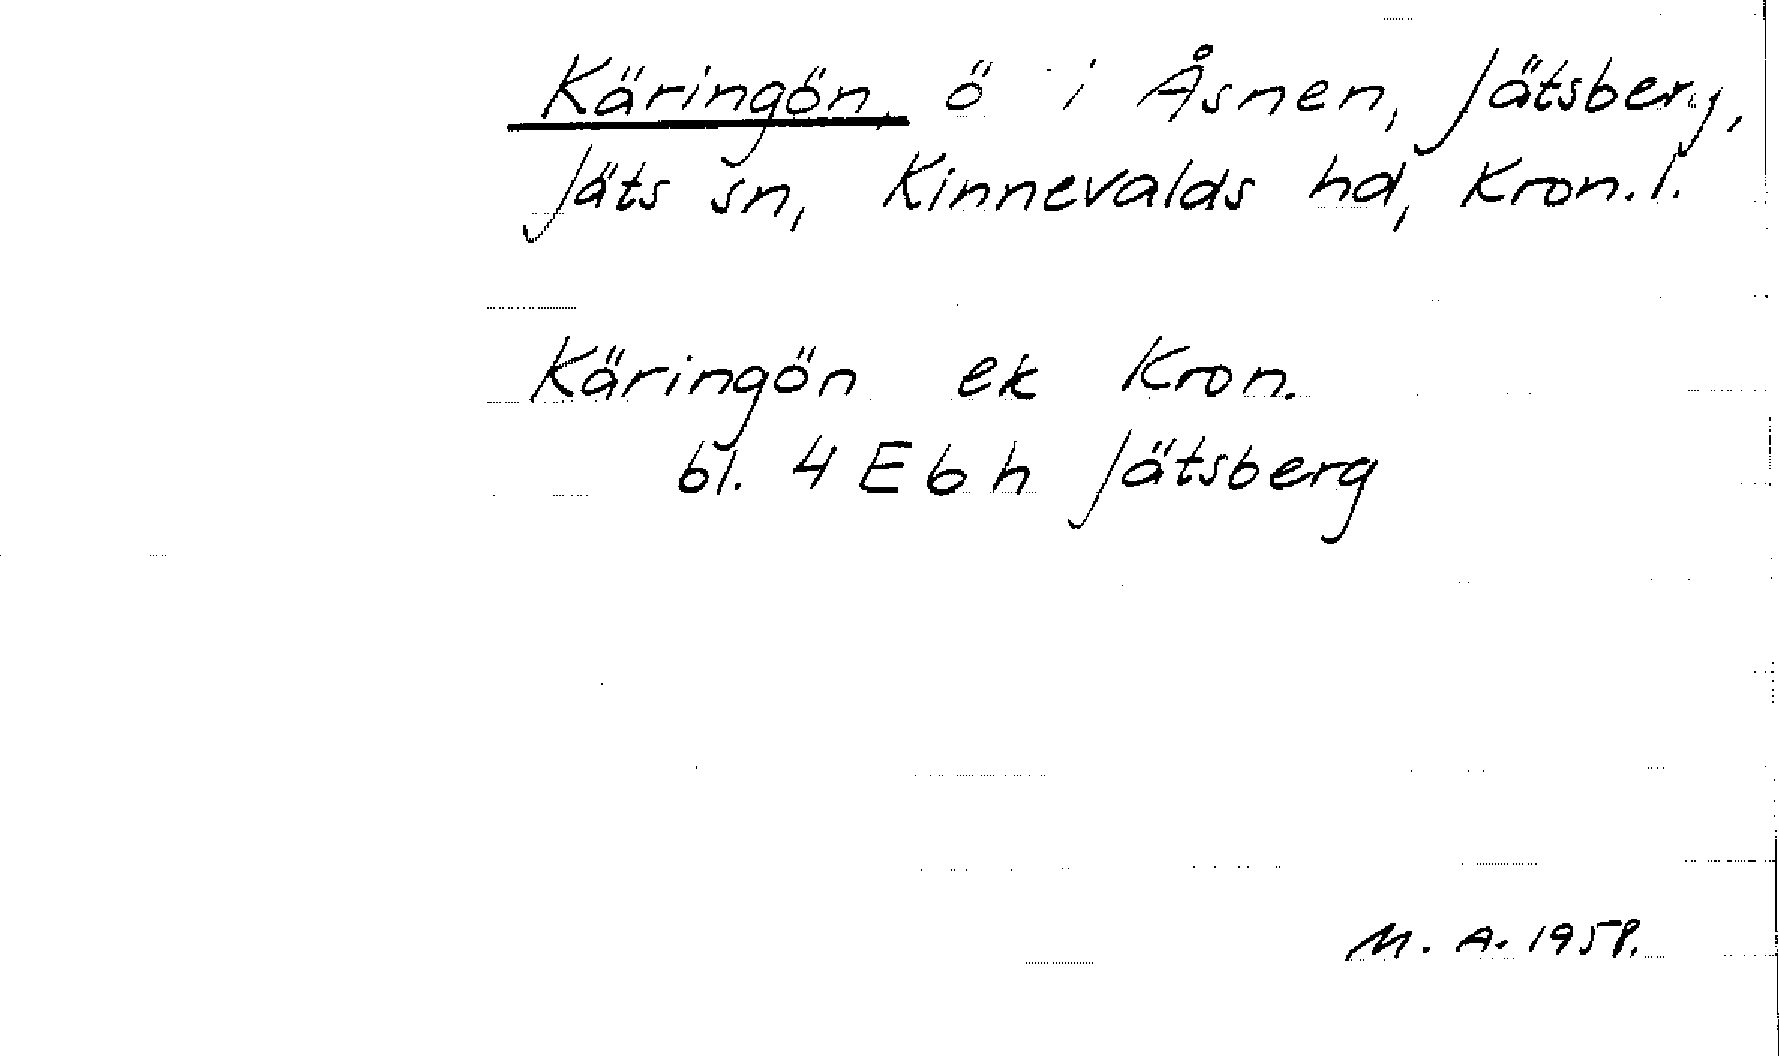 Käringön ö i Åsnen, Jätsberg,
Jäts sn, Kinnevalds hd, Kron.l.
Käringön ek Kron.
bl. 4 E 6 h Jätsberg
M. A. 1958.